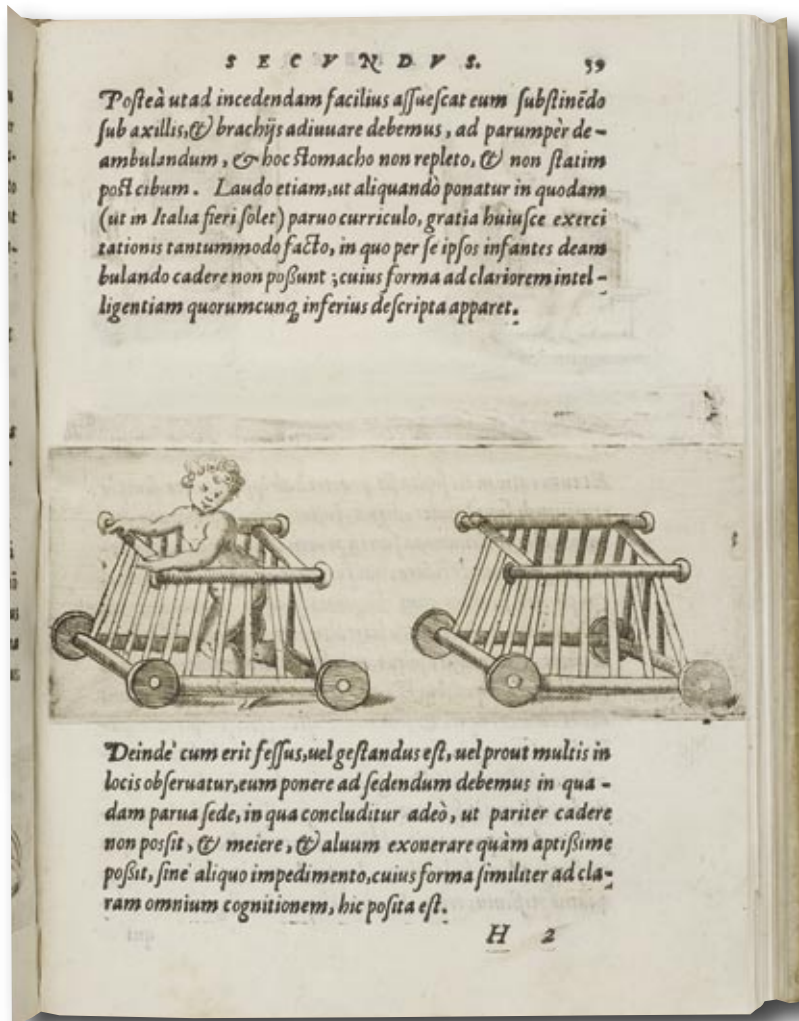 SECVNDVS. 59
Posteà ut ad incedendam facilius assuescat eum substinẽdo
sub axillis, & brachijs adiuuare debemus, ad parumpèr de-
ambulandum, & hoc stomacho non repleto, & non statim
post cibum. Laudo etiam, ut aliquandò ponatur in quodam
(ut in Italia fieri solet) paruo curriculo, gratia huiusce exerci
tationis tantummodo facto, in quo per se ipsos infantes deam
bulando cadere non possunt; cuius forma ad clariorem intel-
ligentiam quorumcunq; inferius descripta apparet.
Deinde cum erit fessus, uel gestandus est, uel prout multis in
locis obseruatur, eum ponere ad sedendum debemus in qua-
dam parua sede, in qua concluditur adeò, ut pariter cadere
non possit, & meiere, & aluum exonerare quàm aptissime
possit, sine aliquo impedimento, cuius forma similiter ad cla-
ram omnium cognitionem, hic posita est.
H 2